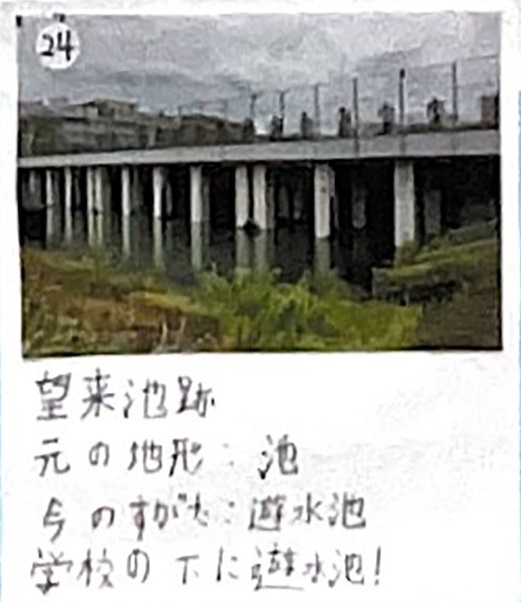 24
望来池跡
元の地形：池
今のすがた：遊水池
学校の下に遊水池！